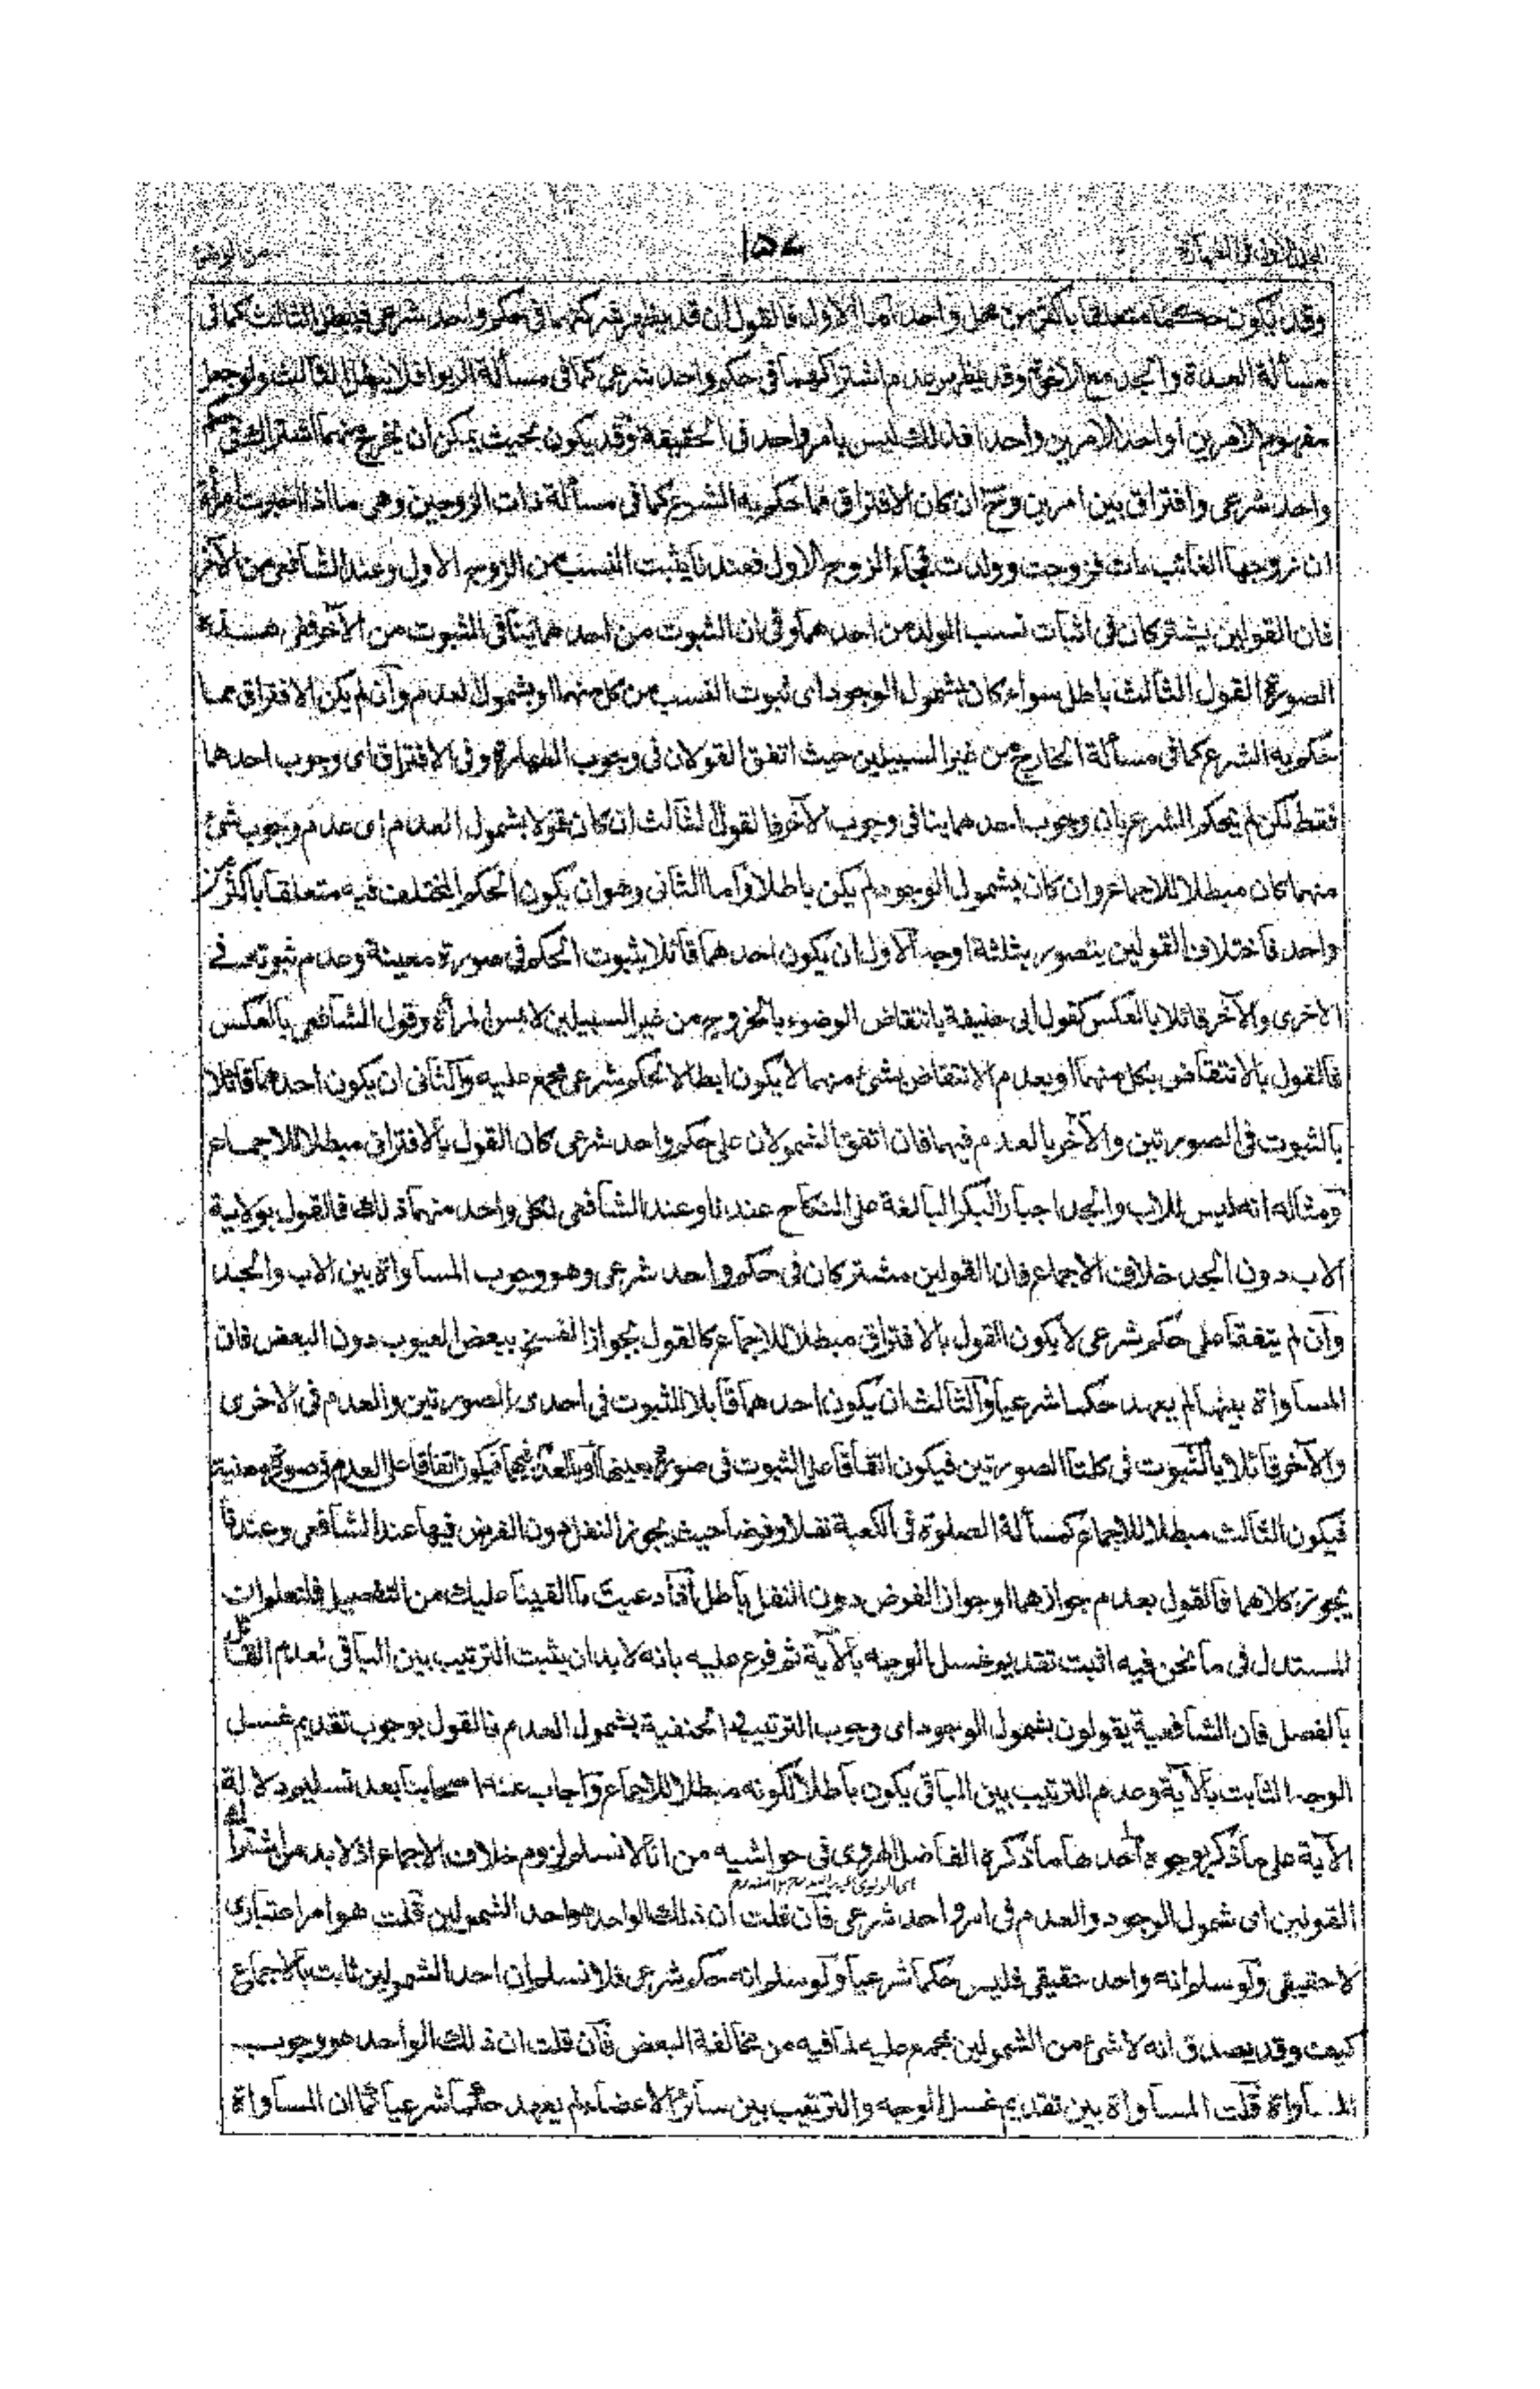 ١٥٧
وقد يكون حكما متعلقا باكثر من محل واحد اما الاول فالقول ان قد يظهر شركتهما فى حكم واحد شرعى فيبطل الثالث كما فى
مسألة العدة والجد مع الاخوة وقد يظهر عدم اشتراكهما فى حكم واحد شرعى كما فى مسألة الربوا فلا يبطل الثالث ولو جعل
مفهوم الامرين او احد الامرين واحدا فذلك ليس بامر واحد فى الحقيقة وقد يكون بحيث يمكن ان يخرج منهما اشتراك فى حكم
واحد شرعى وافتراق بين امرين وح ان كان الافتراق مما حكم به الشرع كما فى مسألة ذات الزوجين وهى ما اذا اخبرت امرأة
ان زوجها الغائب مات فزوجت وولدت فجاء الزوج الاول فعندنا يثبت النسب من الزوج الاول وعند الشافعى من الآخر
فان القولين يشتركان فى اثبات نسب الولد من احدهما وفى ان الثبوت من احدهما ينافى الثبوت من الآخر ففى هـذه
الصورة القول الثالث باطل سواء كان بشمول الوجود اى ثبوت النسب من كل منهما او بشمول العدم وآن لم يكن الافتراق مما
حكم به الشرع كما فى مسألة الخارج من غير السبيلين حيث اتفق القولان فى وجوب الطهارة وفى الافتراق اى وجوب احدها
فقط لكن لم يحكم الشرع بان وجوب احدهما ينافى وجوب الآخر فالقول الثالث ان كان قولا بشمول العدم اى عدم وجوب شئ
منهما كان مبطلا للاجماع وان كان بشمول الوجود لم يكن باطلا وآما الثانى وهو ان يكون الحكم المختلف فيه متعلقا باكثر من
واحد فاختلاف القولين يتصور بثلثة اوجه الاول ان يكون احدهما قائلا بثبوت الحكم فى صورة معينة وعدم ثبوته فى
الاخرى والآخر قائلا بالعكس كقول ابى حنيفة بانتقاض الوضوء بالخروج من غير السبيلين لا بمس المرأة وقول الشافعى بالعكس
فالقول بالانتقاض بكل منهما او بعدم الانتقاض بشئ منهما لا يكون ابطالا لحكم شرعى مجمع عليه والثانى ان يكون احدهما قائلا
بالثبوت فى الصورتين والآخر بالعدم فيهما فان اتفق الشمولان على حكم واحد شرعى كان القول بالافتراق مبطلا للاجمـاع
ومثاله انه ليس للاب والجد اجبار البكر البالغة على النكاح عندنا وعند الشافعى لكل واحد منهما ذلك فالقول بولاية
الاب دون الجد خلاف الاجماع فان القولين مشتركان فى حكم واحد شرعى وهو وجوب المساواة بين الاب والجد
وآن لم يتفقا على حكم شرعى لا يكون القول بالافتراق مبطلا للاجماع كالقول بجواز الفسخ ببعض العيوب دون البعض فان
المساواة بينها لم يعهد حكما شرعيا والثالث ان يكون احدهما قائلا بالثبوت فى احدى الصورتين والعدم فى الاخرى
والآخر قائلا بالثبوت فى كلتا الصورتين فيكون اتفاقا على الثبوت فى صورة بعينها او بالعدم فيهما فيكون اتفاقا على العدم فى صورة معينة
فيكون الثالث مبطلا للاجماع كمسألة الصلوة فى الكعبة نفلا وفرضا حيث يجوز النفل دون الفرض فيها عند الشافعى وعندنا
يجوز كلاهما فالقول بعدم جوازهما او جواز الفرض دون النفل باطل اذا دعيت ما القينا عليك من التفصيل فلتعلم ان
المستدل فى ما نحن فيه اثبت تقديم غسل الوجه بالآية ثم فرع عليه بانه لا بد ان يثبت الترتيب بين الباقى لعدم القائل
بالفصل فان الشافعية يقولون بشمول الوجود اى وجوب الترتيب والحنفية بشمول العدم فالقول بوجوب تقديم غسل
الوجه الثابت بالآية وعدم الترتيب بين الباقى يكون باطلا لكونه مبطلا للاجماع وآجاب عنه اصحابنا بعد تسليم دلالة
الآية على ما ذكر بوجوه احدها ما ذكره الفاضل الهروى فى حواشيه من انا لا نسلم لزوم خلاف الاجماع اذ لا بد من اشتراك
القولين اى شمول الوجود والعدم فى امر واحد شرعى فان قلت ان ذلك الواحد هو احد الشمولين قلت هو امر اعتبارى
لا حقيقى ولو سلم انه واحد حقيقى فليس حكما شرعيا ولو سلم انه حكم شرعى فلا نسلم ان احد الشمولين ثابت بالاجماع
كيف وقد يصدق انه لا شئ من الشمولين بمجمع عليه لما فيه من مخالفة البعض فان قلت ان ذلك الواحد هو وجوب
المساواة قلت المساواة بين تقديم غسل الوجه والترتيب بين سائر الاعضاء لم يعهد حكما شرعيا كما ان المساواة